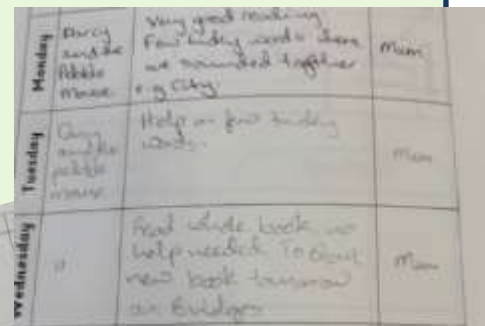 Monday
Darcy
and the
Pebble
mouse
Very good reading
Few tricky words where
we sounded together
e.g City
Mum
Tuesday
and the
pebble
mouse
Help on few tricky
words.
Mum
Wednesday
"
Read whole book no
help needed. To start
new book tomorrow
on Bridges
Mum